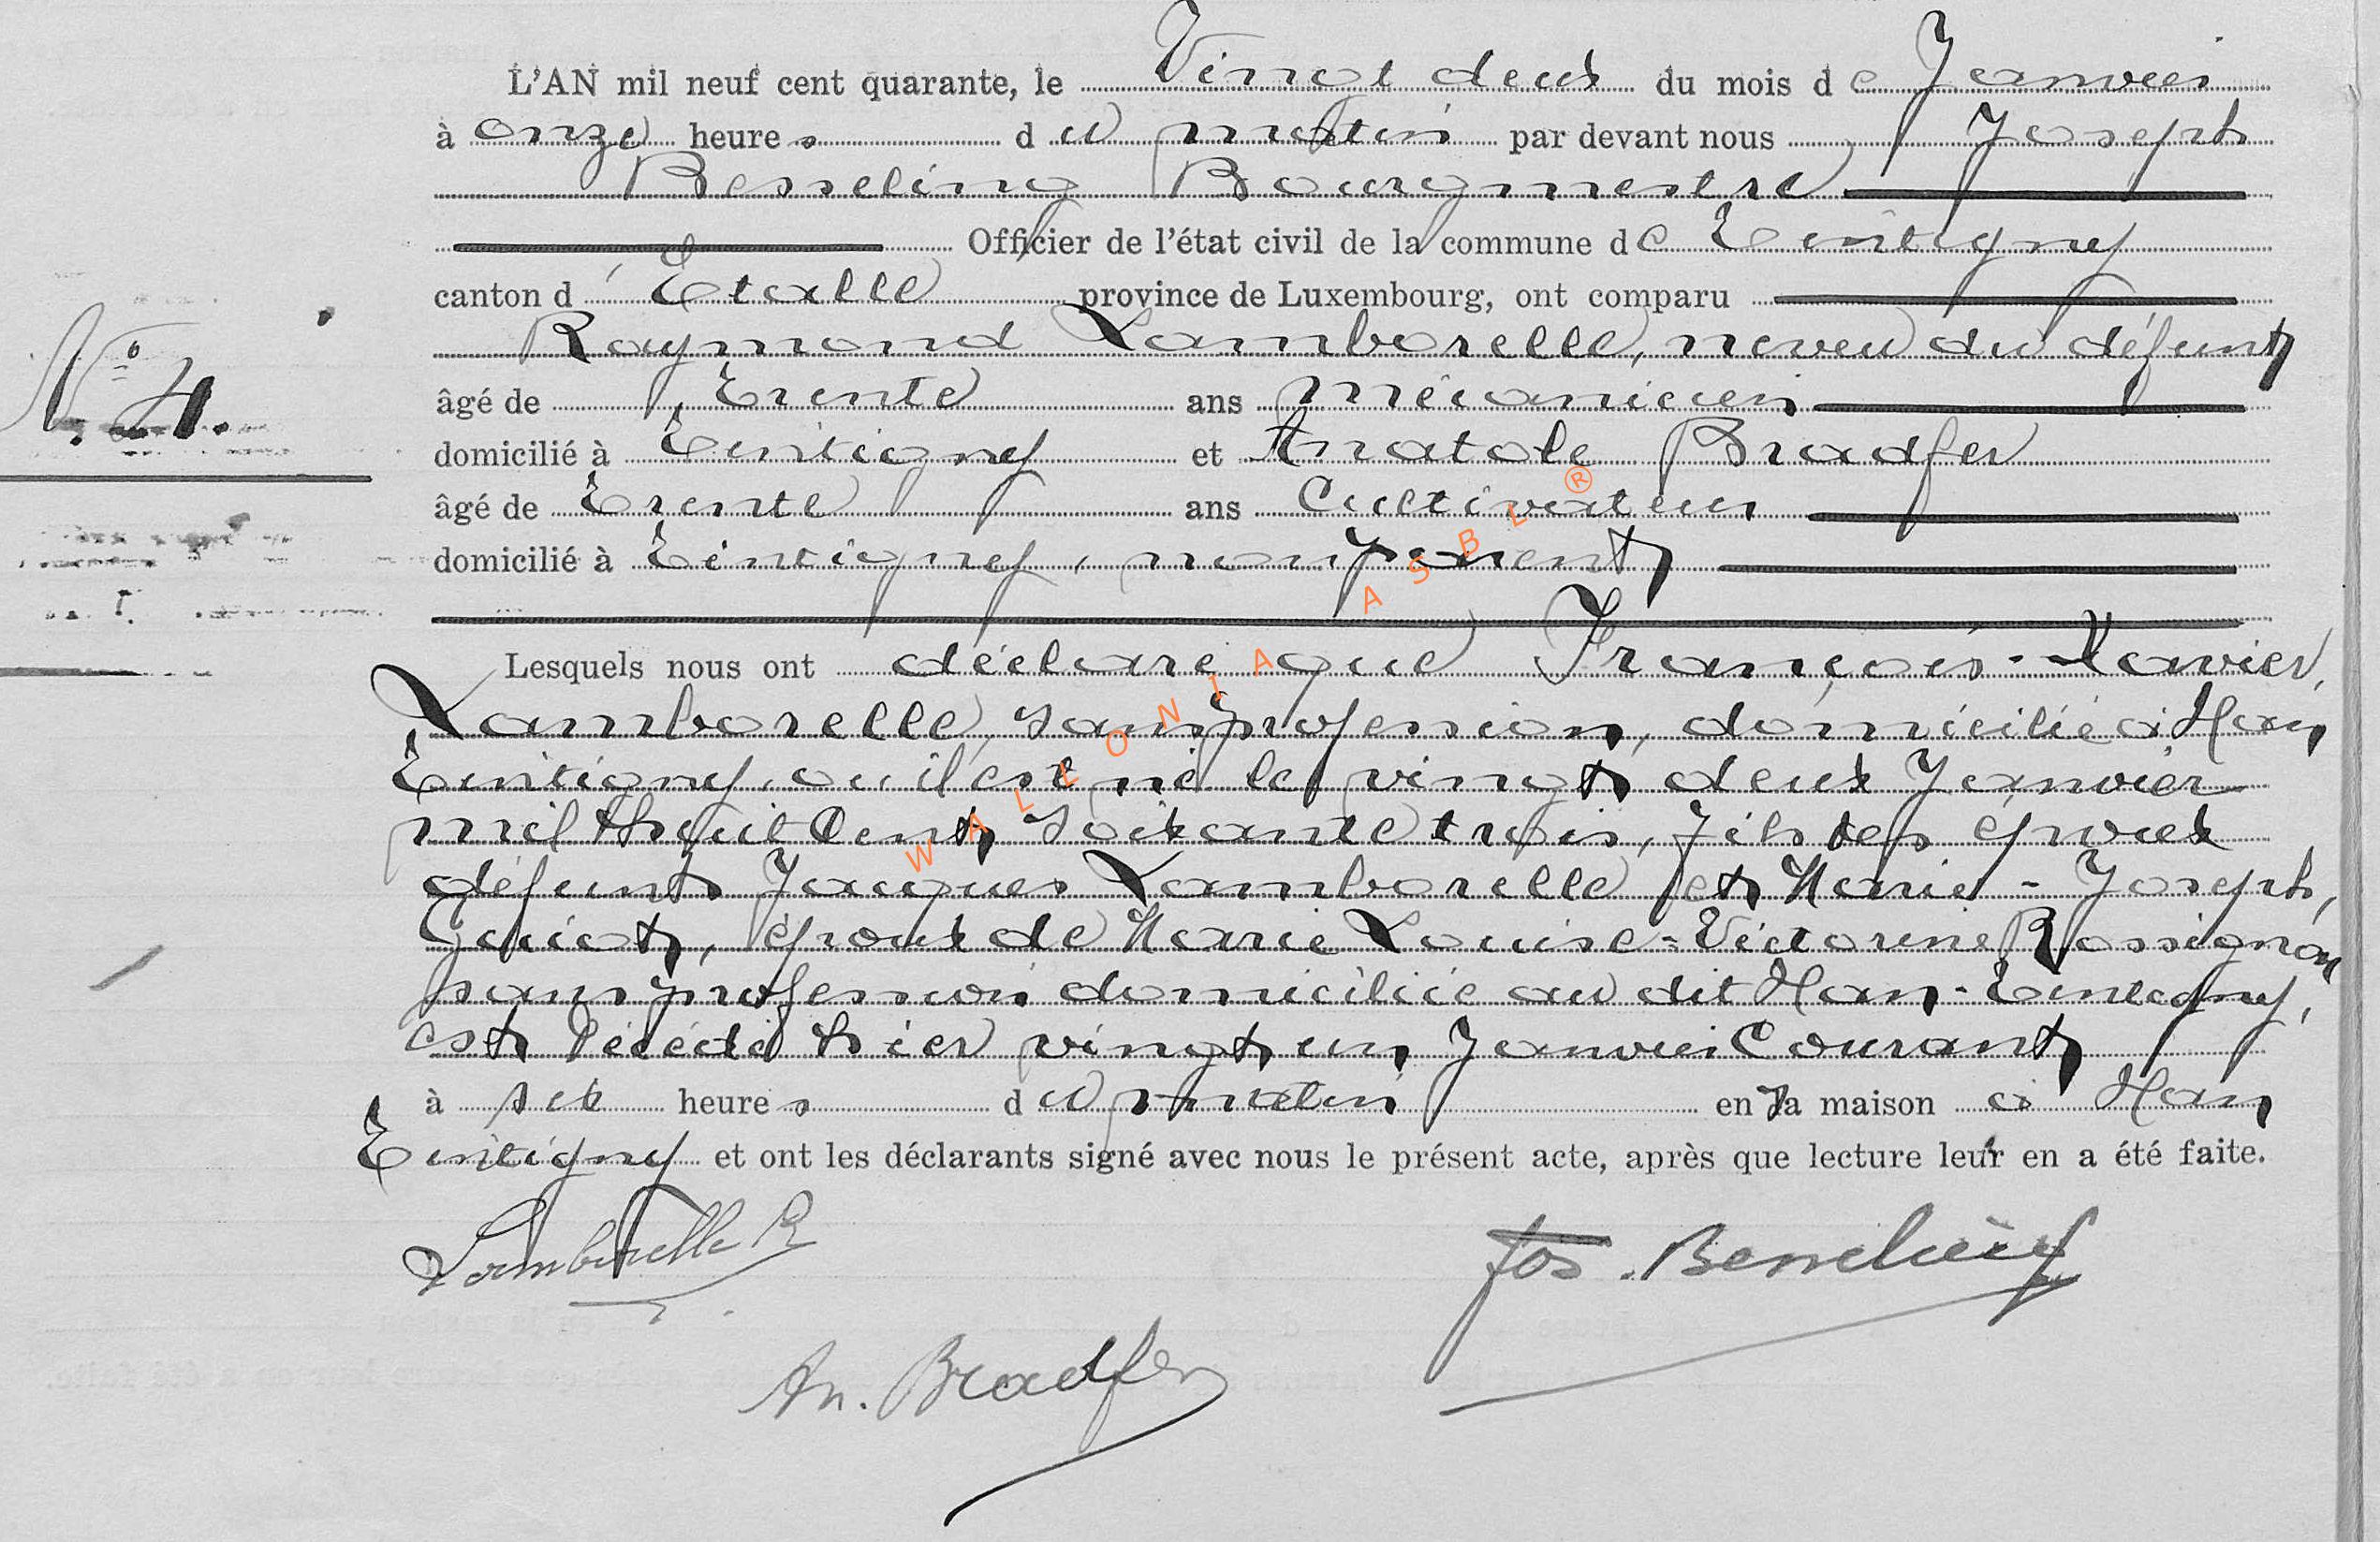 L'AN mil neuf cent quarante, le Vingt deux du mois de Janvier
à onze heures du matin par devant nous Joseph
Besseling Bourgmestre
Officier de l'état civil de la commune de Tintigny
canton d'Etalle province de Luxembourg, ont comparu
Raymond Lamborelle, neveu du défunt
N° 4.
âgé de trente ans mécanicien
domicilié à Tintigny et Anatole Bradfer
âgé de trente ans cultivateur
domicilié à Tintigny, non parent
Lesquels nous ont déclaré que François-Xavier,
Lamborelle, sans profession, domicilié à Han
Tintigny, où il est né le vingt deux Janvier
mil huit cent soixante trois, fils des époux
défunts Jacques Lamborelle et Marie-Joseph,
Guiot, époux de Marie Louise-Victorine Rossignon
sans profession domiciliée au dit Han-Tintigny,
est décédé hier vingt un Janvier Courant
à six heures du matin en sa maison à Han
Tintigny et ont les déclarants signé avec nous le présent acte, après que lecture leur en a été faite.
Lamborelle R
Jos. Besseling
An. Bradfer
WALLONIA ASBL ®